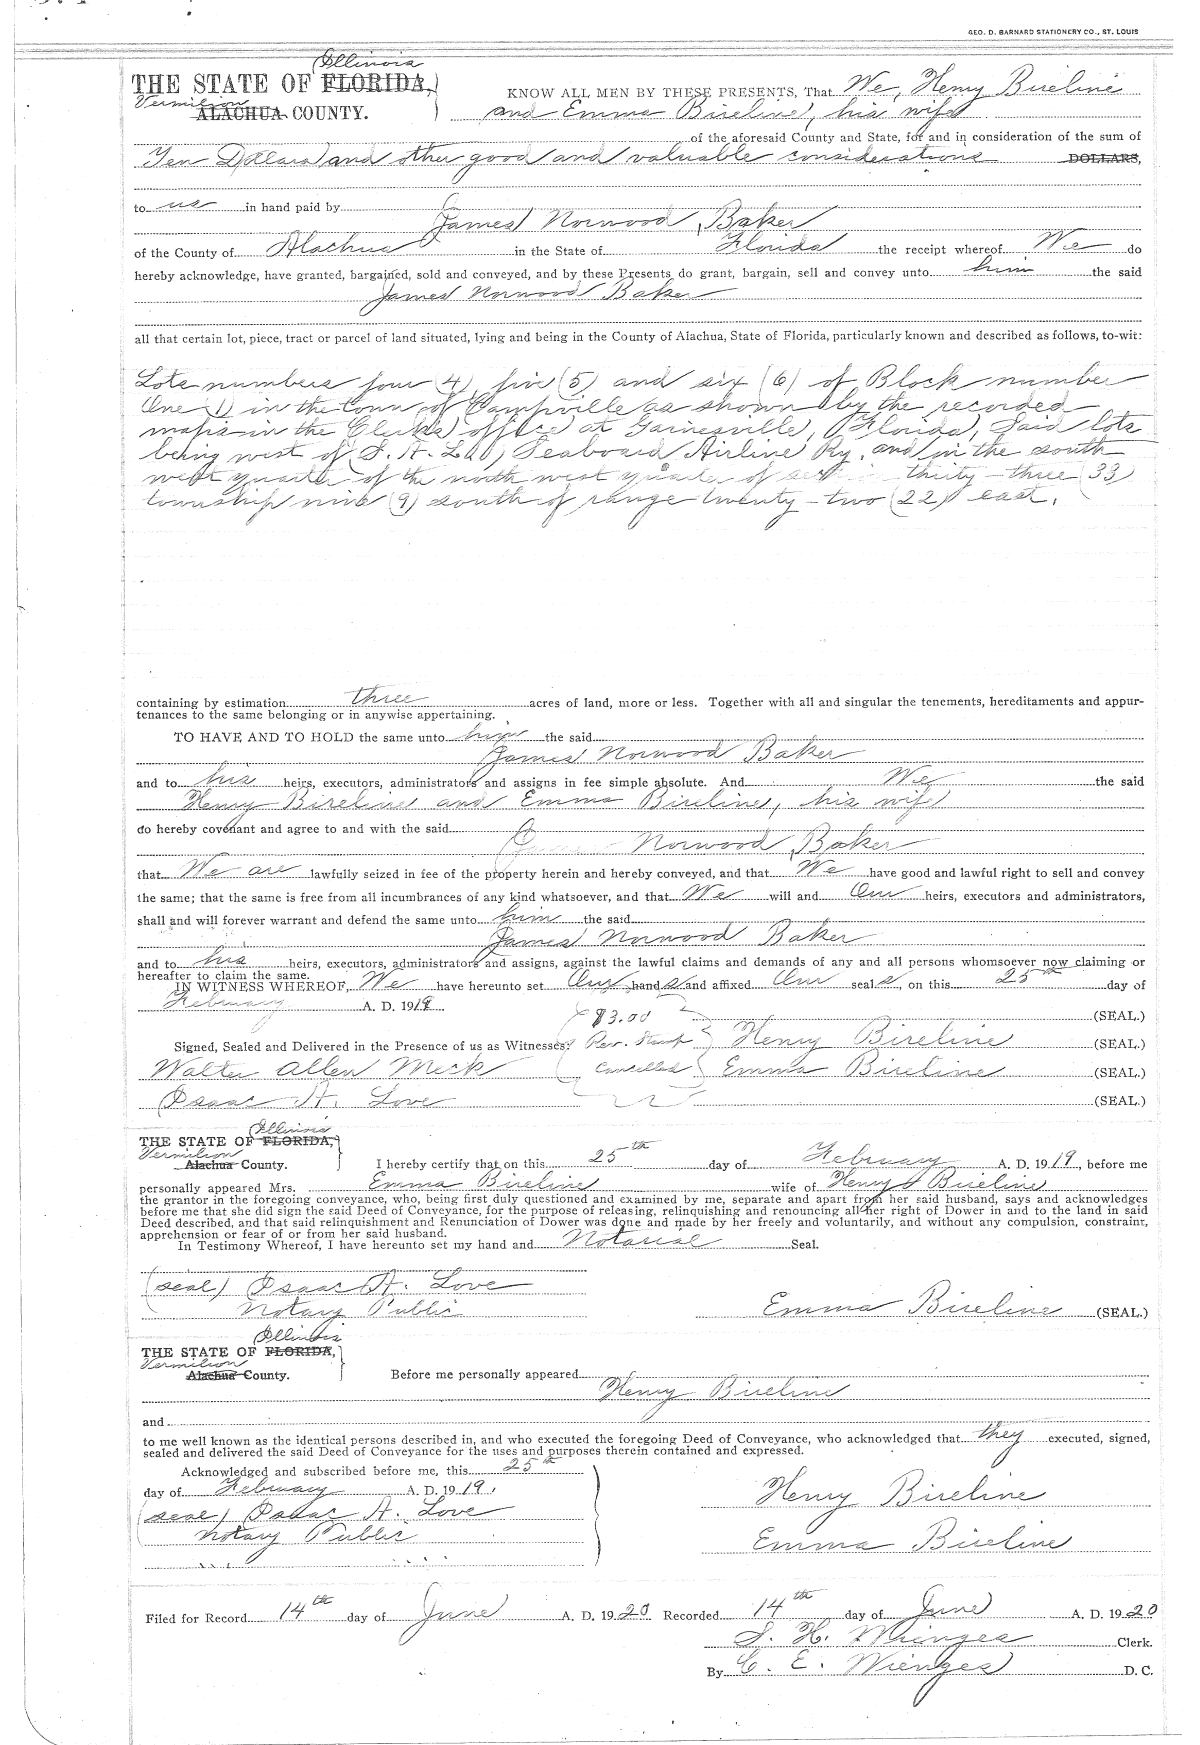 GEO. D. BARNARD STATIONERY CO., ST. LOUIS
Illinois
THE STATE OF FLORIDA,
Vermilion
ALACHUA COUNTY.
KNOW ALL MEN BY THESE PRESENTS, That We, Henry Bireline
and Emma Bireline, his wife
of the aforesaid County and State, for and in consideration of the sum of
Ten Dollars and other good and valuable considerations DOLLARS,
to us in hand paid by
James Norwood Baker
of the County of Alachua in the State of Florida the receipt whereof We do
hereby acknowledge, have granted, bargained, sold and conveyed, and by these Presents do grant, bargain, sell and convey unto him the said
James Norwood Baker
all that certain lot, piece, tract or parcel of land situated, lying and being in the County of Alachua, State of Florida, particularly known and described as follows, to-wit:
Lots numbers four (4), five (5) and six (6) of Block number
One (1) in the town of Campville as shown by the recorded
maps in the Clerks office at Gainesville, Florida, Said lots
being west of S. A. L. Seaboard Airline Ry. and in the south
west quarter of the north west quarter of thirty-three (33)
township nine (9) south of range twenty-two (22) east.
containing by estimation three acres of land, more or less. Together with all and singular the tenements, hereditaments and appur-
tenances to the same belonging or in anywise appertaining.
TO HAVE AND TO HOLD the same unto him the said
James Norwood Baker
and to his heirs, executors, administrators and assigns in fee simple absolute. And We the said
Henry Bireline and Emma Bireline, his wife
do hereby covenant and agree to and with the said
James Norwood Baker
that We are lawfully seized in fee of the property herein and hereby conveyed, and that We have good and lawful right to sell and convey
the same; that the same is free from all incumbrances of any kind whatsoever, and that We will and Our heirs, executors and administrators,
shall and will forever warrant and defend the same unto him the said
James Norwood Baker
and to his heirs, executors, administrators and assigns, against the lawful claims and demands of any and all persons whomsoever now claiming or
hereafter to claim the same.
IN WITNESS WHEREOF, We have hereunto set Our hands and affixed Our seals, on this 25th day of
February A. D. 1919
$3.00 (SEAL.)
Signed, Sealed and Delivered in the Presence of us as Witnesses: Rev. Stamp Henry Bireline (SEAL.)
Walter Allen Meck Cancelled Emma Bireline (SEAL.)
Isaac A. Love (SEAL.)
Illinois
THE STATE OF FLORIDA,
Vermilion
Alachua County.
I hereby certify that on this 25th day of February A. D. 1919, before me
personally appeared Mrs. Emma Bireline wife of Henry Bireline
the grantor in the foregoing conveyance, who, being first duly questioned and examined by me, separate and apart from her said husband, says and acknowledges
before me that she did sign the said Deed of Conveyance, for the purpose of releasing, relinquishing and renouncing all her right of Dower in and to the land in said
Deed described, and that said relinquishment and Renunciation of Dower was done and made by her freely and voluntarily, and without any compulsion, constraint,
apprehension or fear of or from her said husband.
In Testimony Whereof, I have hereunto set my hand and Notarial Seal.
(seal) Isaac A. Love
Notary Public
Emma Bireline (SEAL.)
Illinois
THE STATE OF FLORIDA,
Vermilion
Alachua County.
Before me personally appeared
Henry Bireline
and
to me well known as the identical persons described in, and who executed the foregoing Deed of Conveyance, who acknowledged that they executed, signed,
sealed and delivered the said Deed of Conveyance for the uses and purposes therein contained and expressed.
Acknowledged and subscribed before me, this 25th
day of February A. D. 1919.
(seal) Isaac A. Love
Notary Public
Henry Bireline
Emma Bireline
Filed for Record 14th day of June A. D. 1920 Recorded 14th day of June A. D. 1920
S. H. Wienges Clerk.
By C. E. Wienges D. C.